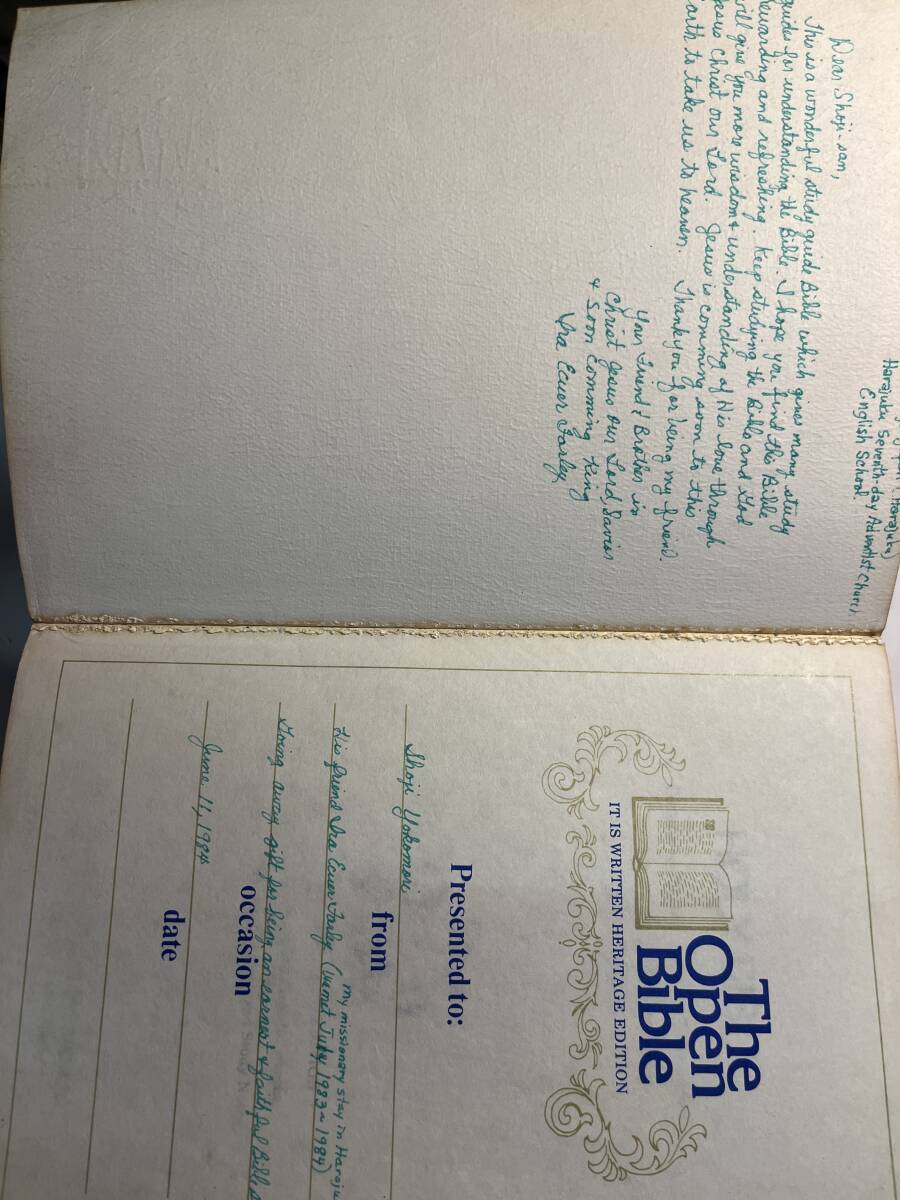 Harajuku)
Harajuku Seventh-day Adventist Church
English School
Dear Shoji-san,
This is a wonderful study guide Bible which gives many study
guides for understanding the Bible. I hope you find this Bible
rewarding and refreshing. Keep studying the Bible and God
will give you more wisdom & understanding of His love through
Jesus Christ our Lord. Jesus is comming soon to this
earth to take us to heaven. Thank you for being my friend.
Your Friend & Brother in
Christ Jesus our Lord, Savior
& soon comming King
Ira Ecuer Farley
The
Open
Bible
IT IS WRITTEN HERITAGE EDITION
Presented to:
Shoji Yokomori
from
my missionary stay in Haraju
His friend Ira Ecuer Farley (We met July 1983~1984)
occasion
Going away gift for being an earnest & faithful Bible
June 11, 1984
date